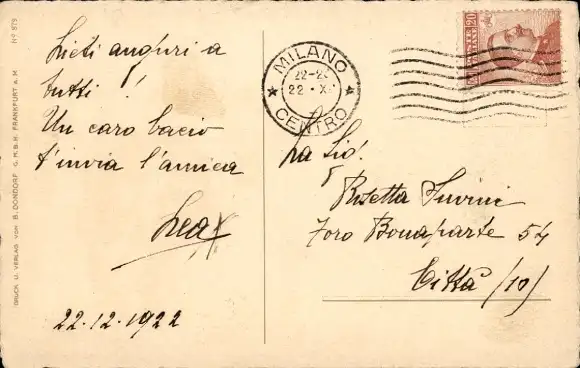 Lieti auguri a
tutti!
Un caro bacio
t'invia l'amica
Lea
22.12.1922
MILANO
22-2
22 · X
CENTRO
20
Rosetta Suvini
Foro Bonaparte 54
Città (10)
DRUCK U. VERLAG VON B. DONDORF G.M.B.H. FRANKFURT A.M.
Nº 875